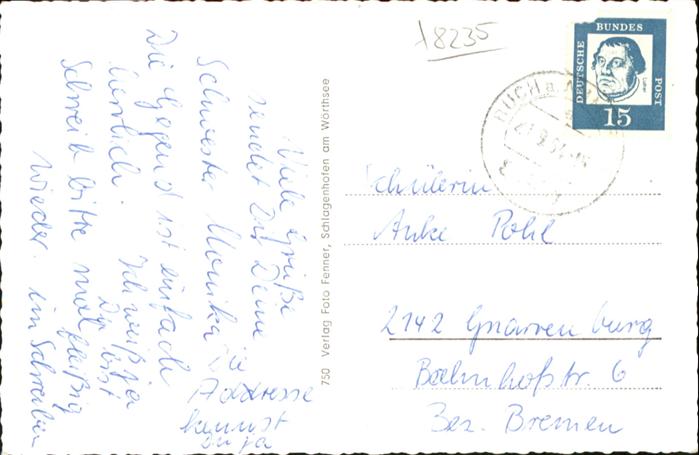 18235
DEUTSCHE
BUNDES
POST
Luther
15
BUCH a. A
Viele Grüße
sendet Dir Deine
Schwester Monika
Die Gegend ist einfach
herrlich. Ich weiß ja
Du bist
Schreib bitte mal fleißig
wieder. im Schreiben
Die
Addresse
kennst
Du ja
750 Verlag Foto Fenner, Schlagenhofen am Wörthsee
Schülerin
Anke Pohl
2142 Gnarrenburg
Bahnhofstr. 6
Bez. Bremen